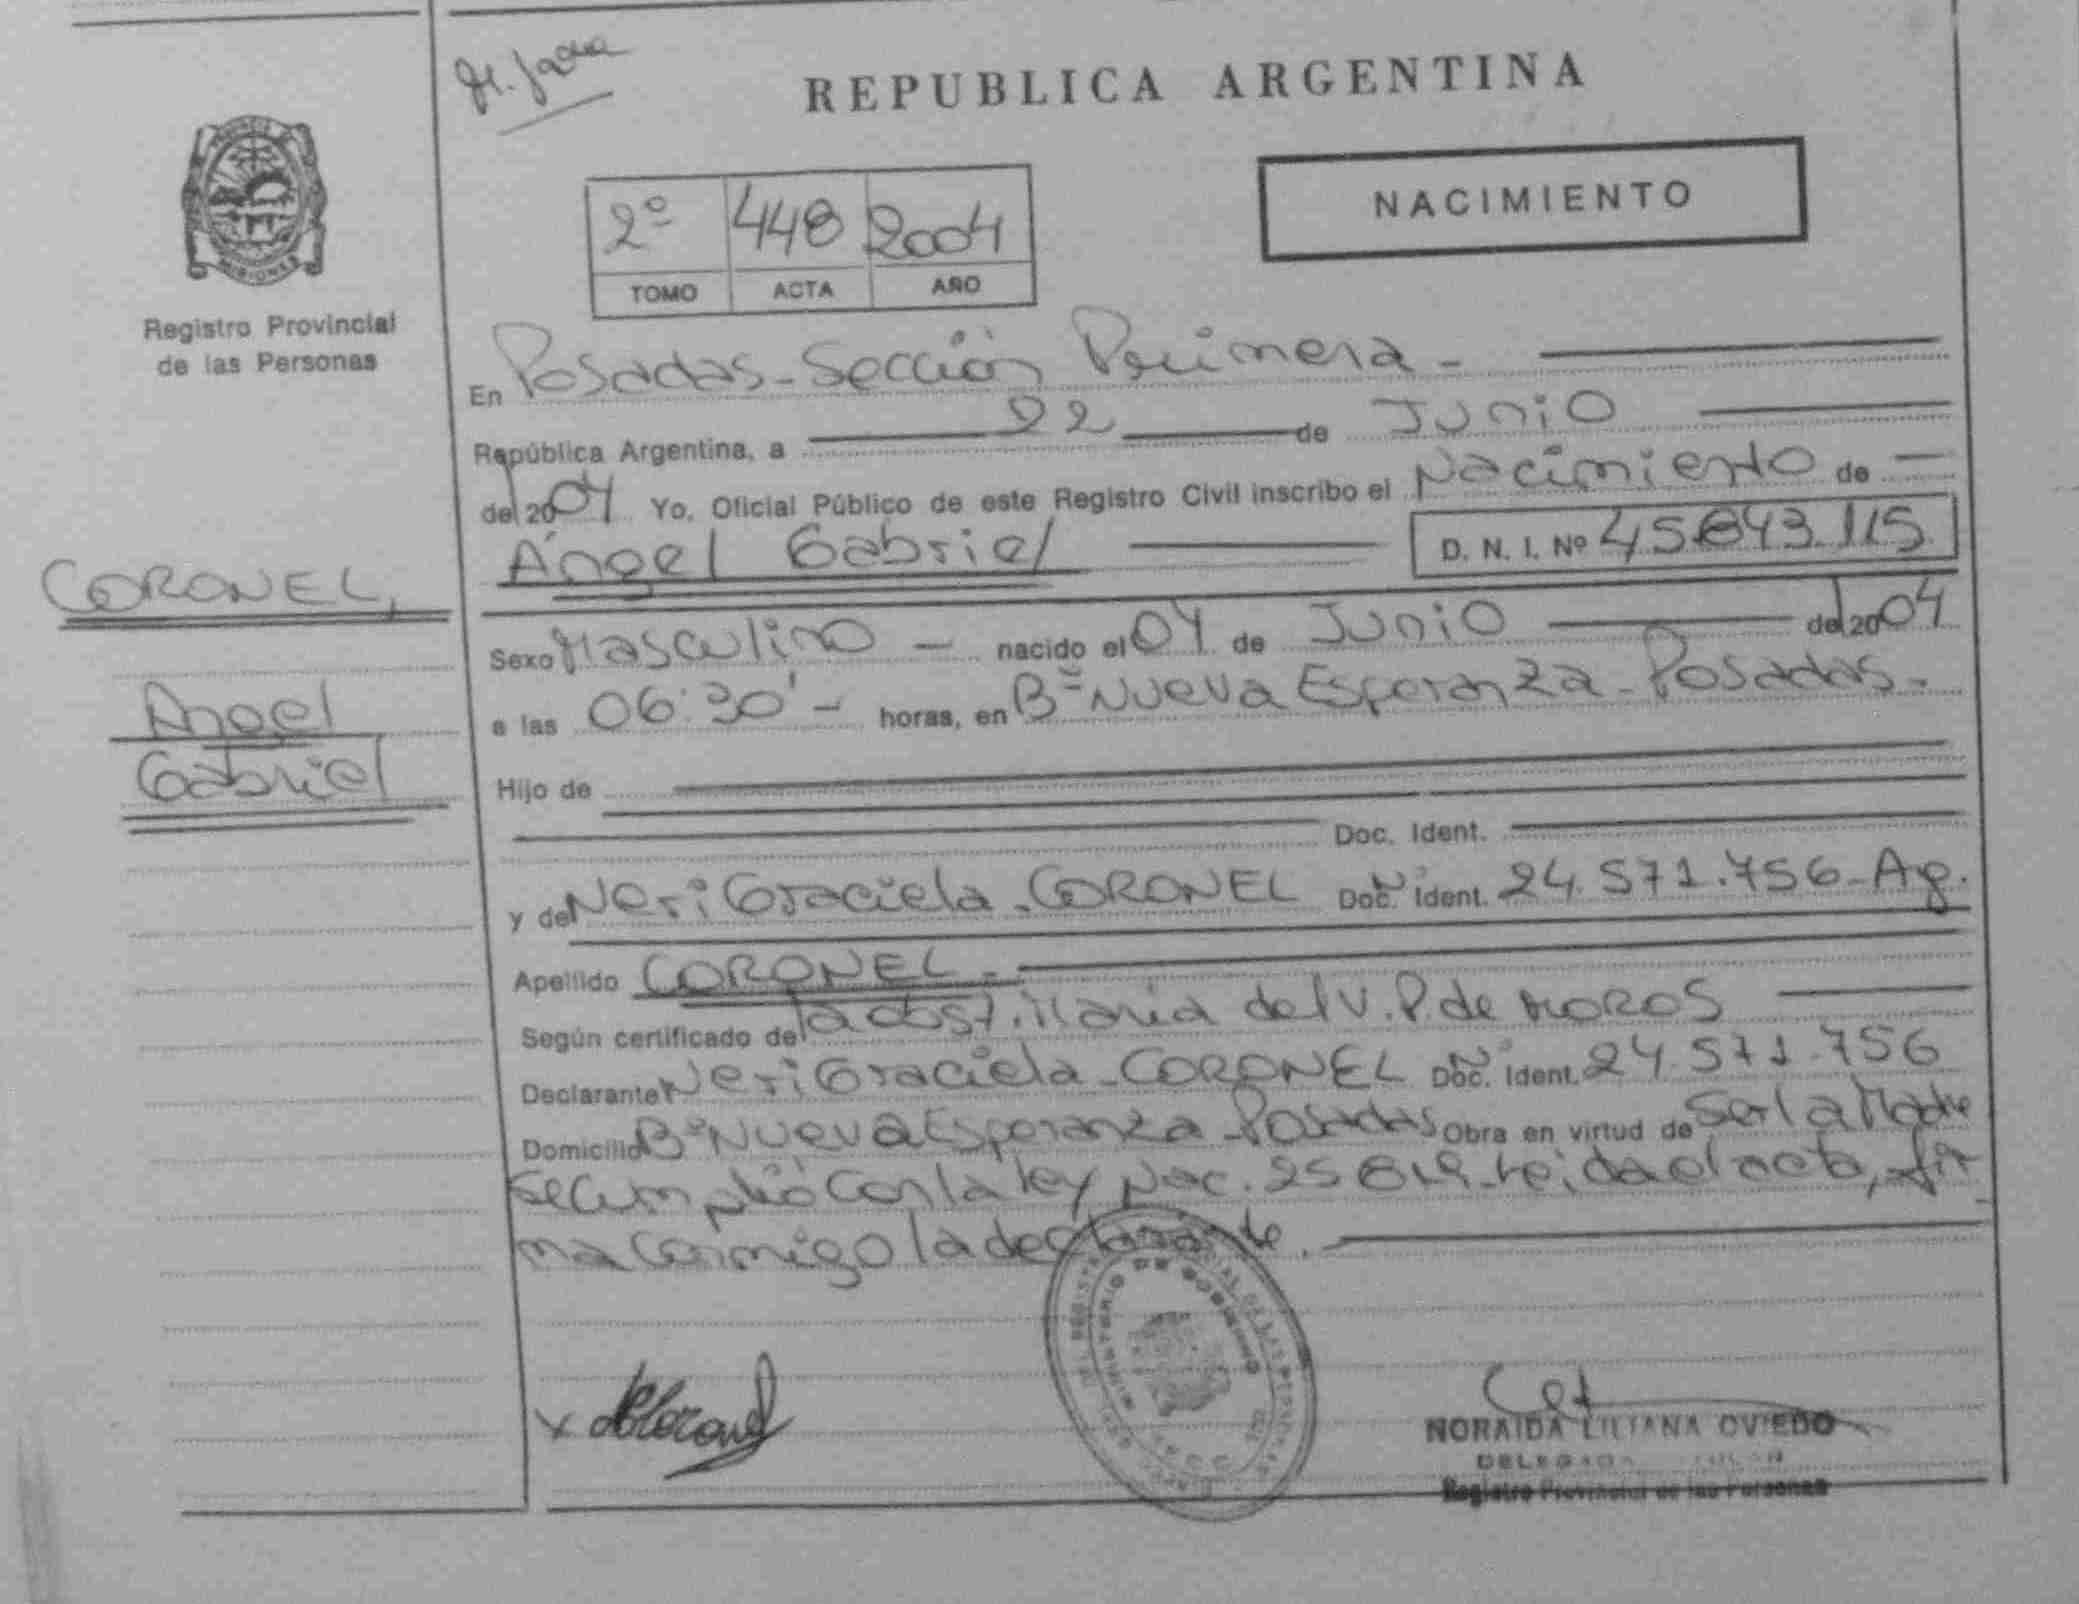 REPUBLICA ARGENTINA
NACIMIENTO
2º 448 2004
TOMO ACTA AÑO
MISIONES
Registro Provincial
de las Personas
CORONEL,
Angel
Gabriel
En Posadas - Sección Primera -
República Argentina, a 22 de Junio
del 2004 Yo, Oficial Público de este Registro Civil inscribo el Nacimiento de
Ángel Gabriel D. N. I. Nº 45.843.115
Sexo Masculino - nacido el 04 de Junio del 2004
a las 06:30' - horas, en Bº Nueva Esperanza - Posadas -
Hijo de
Doc. Ident.
y de Neri Graciela - CORONEL Doc. Ident. Nº 24.571.756 - Ag.
Apellido CORONEL -
Según certificado de la obst. María del V. P. de MOROS
Declarante Neri Graciela - CORONEL Doc. Ident. Nº 24.571.756
Domicilio Bº Nueva Esperanza - Posadas Obra en virtud de Ser la Madre
Se cumplió con la ley Nac. 25.819 - leida el acta, fir
ma conmigo la declarante.
MINISTERIO DE GOBIERNO
x Coronel
NORAIDA LILIANA OVIEDO
DELEGADA
Registro Provincial de las Personas